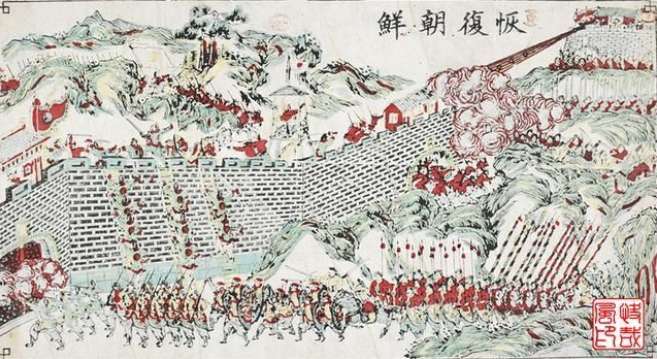 恢復朝鮮